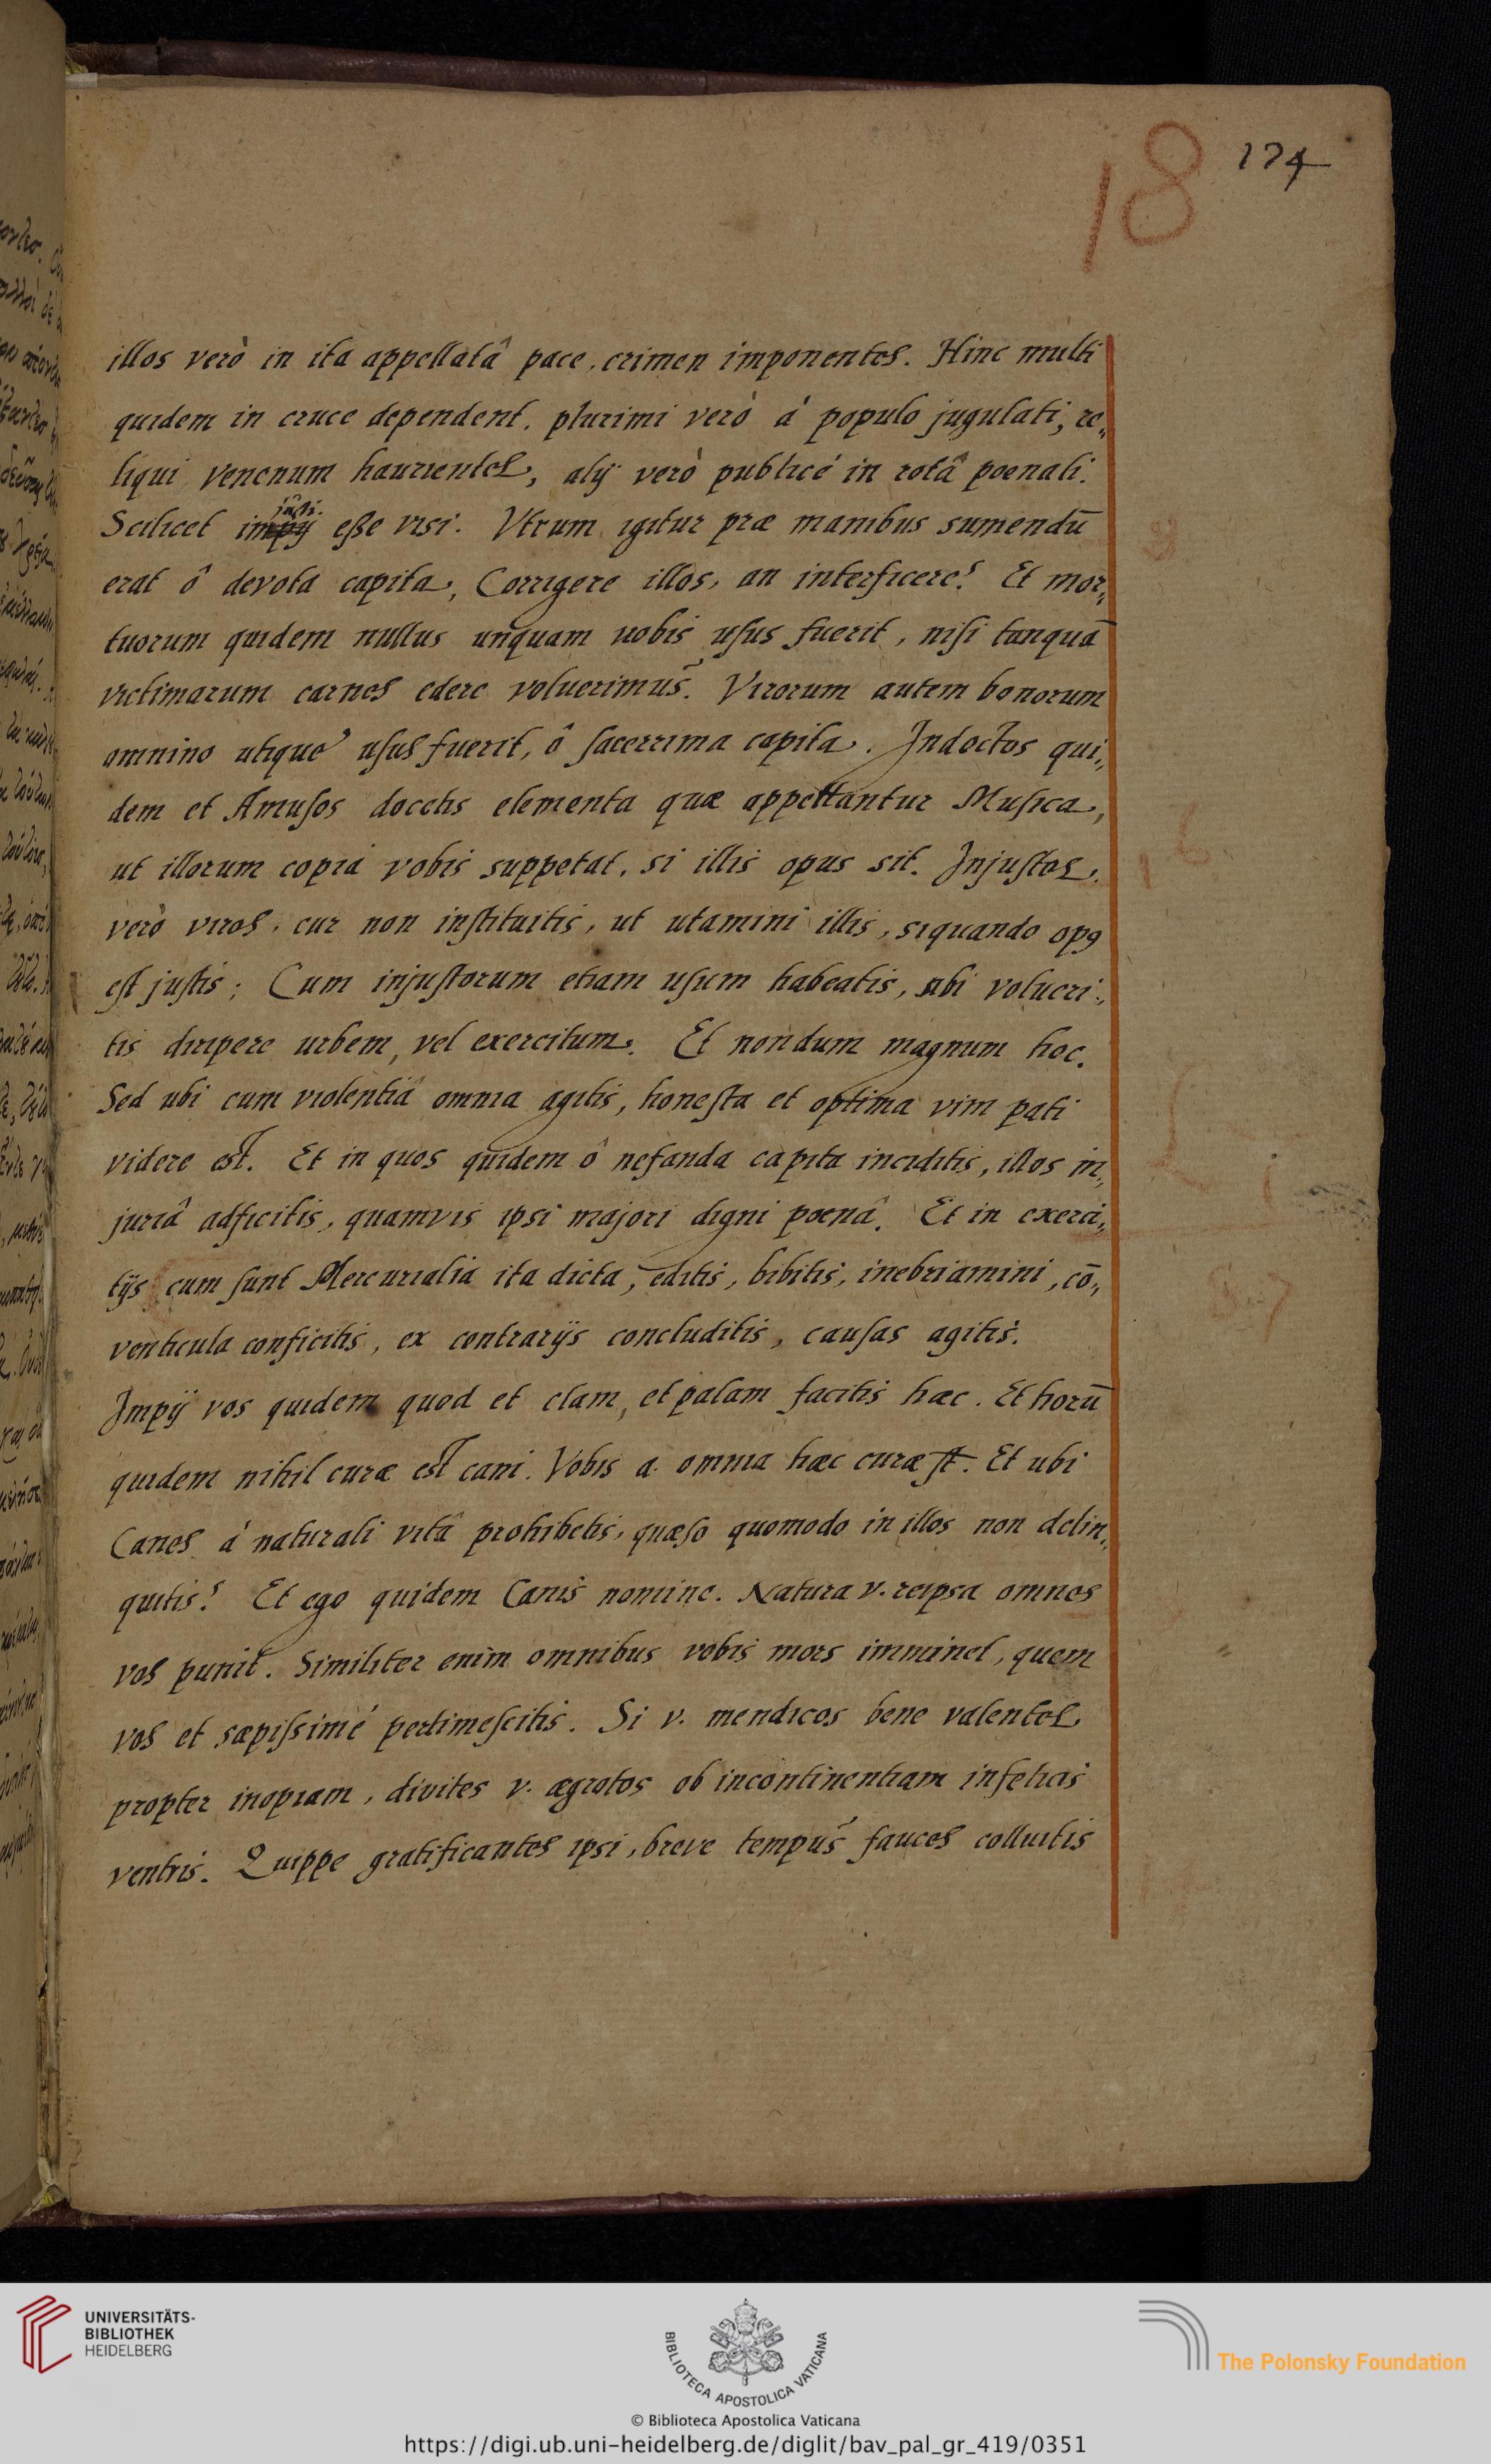 18 174
illos verò in ita appellatâ pace, crimen imponentes. Hinc multi
quidem in cruce dependent, plurimi verò á populo jugulati, re„
liqui venenum haurientes, alÿ verò publicé in rotâ poenali.
Scilicet impÿ eße visi. Vtrum igitur præ manibus sumendū
erat ô devota capita, Corrigere illos, an interficere? Et mor„
tuorum quidem nullus unquam nobis usus fuerit, nisi tanquā
victimarum carnes edere voluerimus. Virorum autem bonorum
omnino utique usus fuerit, ô sacerrima capita. Indoctos qui„
dem et Amusos docetis elementa quæ appellantur Musica,
ut illorum copiá vobis suppetat, si illis opus sit. Injustos
verò viros, cur non instituitis, ut utamini illis, siquando opꝯ
est justis; Cum injustorum etiam usum habeatis, ubi volueri„
tis diripere urbem, vel exercitum. Et nondum magnum hoc.
Sed ubi cum violentiâ omnia agitis, honesta et optima vim pati
videre est. Et in quos quidem ô nefanda capita inciditis, illos in„
juriâ adficitis, quamvis ipsi majori digni poenâ. Et in exerci„
tÿs cum sunt Mercurialia ita dicta, editis, bibitis, inebriamini, cō„
venticula conficitis, ex contrarÿs concluditis, causas agitis.
Impÿ vos quidem quod et clam, et palam facitis hæc. Et horū
quidem nihil curæ est cani. Vobis a. omnia hæc curæ st. Et ubi
Canes á naturali vitâ prohibetis, quæso quomodo in illos non delin„
quitis? Et ego quidem Canis nomine. Natura v. reipsa omnes
vos punit. Similiter enim omnibus vobis mors imminet, quem
vos et sæpissimé pertimescitis. Si v. mendicos bene valentes
propter inopiam, divites v. ægrotos ob incontinentiam infelicis
ventris. Quippe gratificantes ipsi, breve tempus fauces colluitis
UNIVERSITÄTS-
BIBLIOTHEK
HEIDELBERG
BIBLIOTECA APOSTOLICA VATICANA
The Polonsky Foundation
© Biblioteca Apostolica Vaticana
https://digi.ub.uni-heidelberg.de/diglit/bav_pal_gr_419/0351